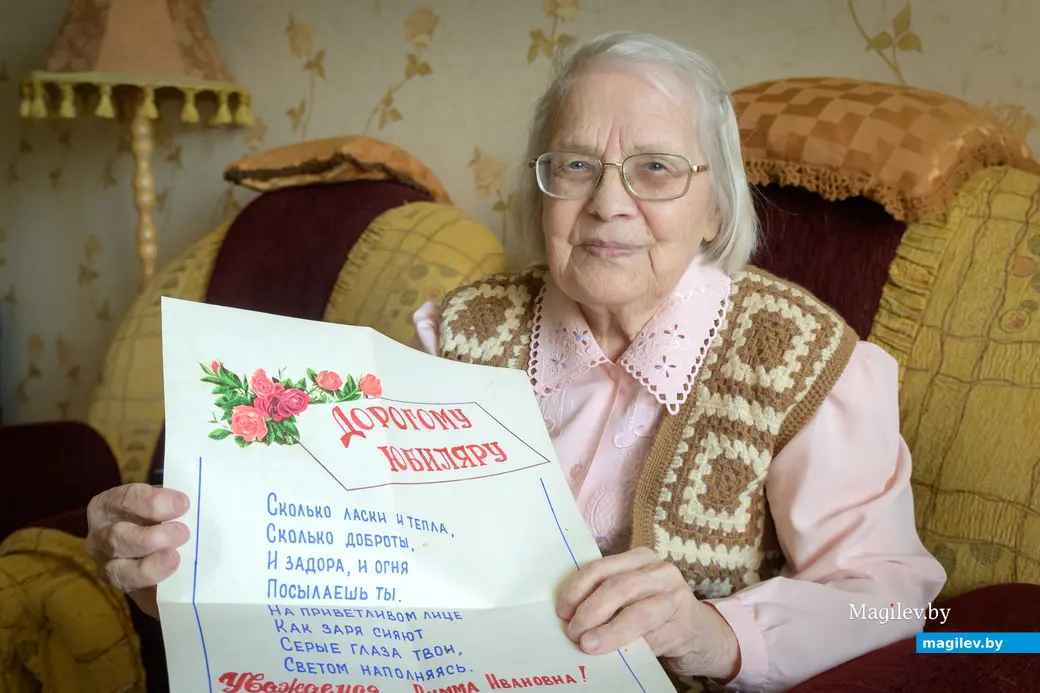 ДОРОГОМУ
ЮБИЛЯРУ
СКОЛЬКО ЛАСКИ И ТЕПЛА,
СКОЛЬКО ДОБРОТЫ,
И ЗАДОРА, И ОГНЯ
ПОСЫЛАЕШЬ ТЫ.
НА ПРИВЕТЛИВОМ ЛИЦЕ
КАК ЗАРЯ СИЯЮТ
СЕРЫЕ ГЛАЗА ТВОИ,
СВЕТОМ НАПОЛНЯЯСЬ.
Уважаемая Римма Ивановна!
Magilev.by
magilev.by